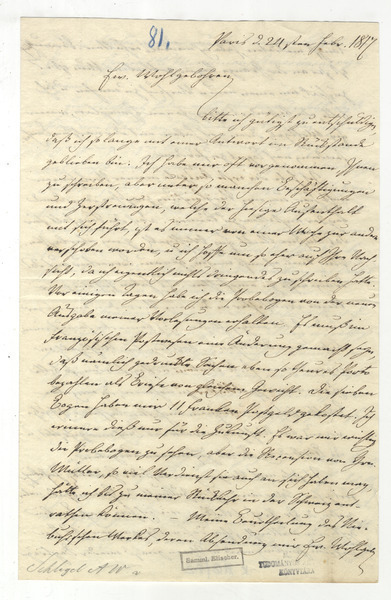 81.
Paris d. 24sten Febr. 1817
Ew. Wohlgebohren
bitte ich gütigst zu entschuldigen,
daß ich so lange mit einer Antwort im Rückstande
geblieben bin. Ich habe mir oft vorgenommen Ihnen
zu schreiben, aber unter so manchen Beschäftigungen
und Zerstreuungen, welche der hiesige Aufenthalt
mit sich führt, ist es immer von einer Woche zur andern
verschoben worden, u ich hoffe um so eher auf Ihre Nach
sicht, da ich eigentlich nichts dringendes zu schreiben hatte.
Vor einigen Tagen habe ich die Probebogen von der neuen
Ausgabe meiner Vorlesungen erhalten. Es muß im
Französischen Postwesen eine Änderung gemacht seyn,
daß nämlich gedruckte Sachen eben so theures Porto
bezahlen als Briefe von gleichem Gewicht. Die sieben
Bogen haben mir 11 Franken Postgeld gekostet. Ich
erinnre dieß nur für die Zukunft. Es war mir wichtig
die Probebogen zu sehen, aber die Recension von Hrn.
Müller, so viel Verdienst sie auch an sich haben mag,
hätte ich bis zu meiner Rückkehr in der Schweiz ent
rathen können. — Meine Beurtheilung des Nie-
buhrschen Werkes, deren Absendung mir Ew. Wohlgeb.
Schlegel A W
Samml. Elischer.
KÖNYVTÁRA